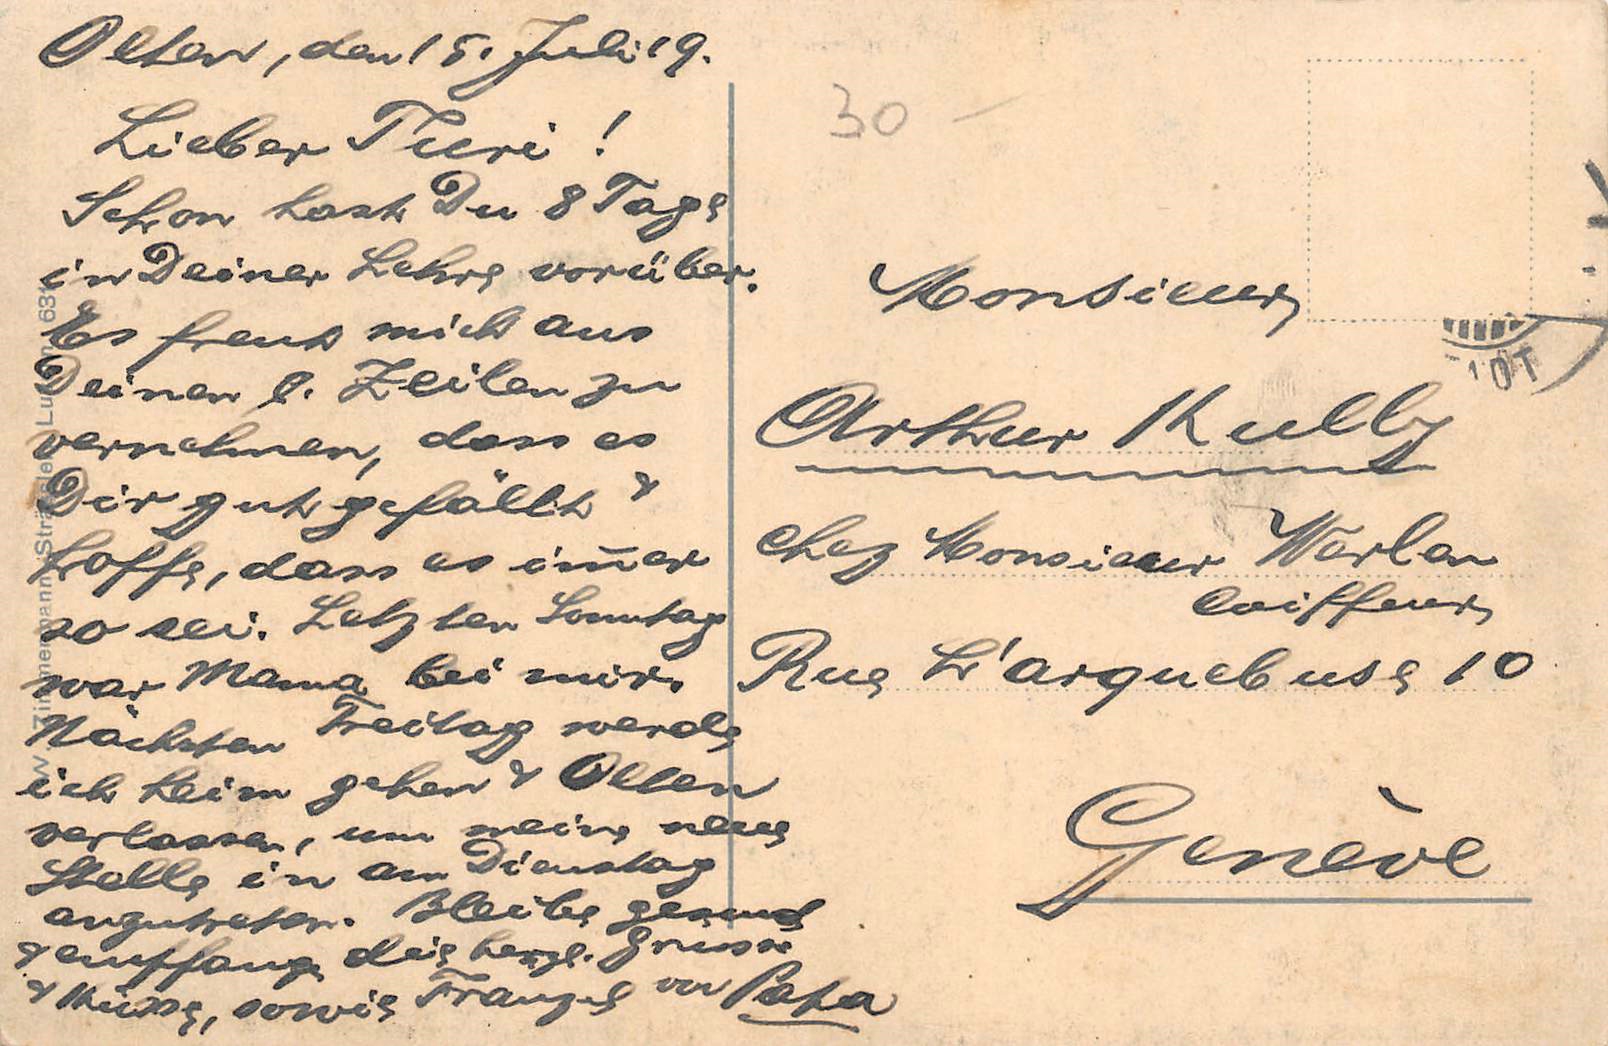 Olten, den 15. Juli 19.
Lieber Turi !
Schon hast Du 8 Tage
in Deiner Lehre vorüber.
Es freut mich aus
Deinen l. Zeilen zu
vernehmen, dass es
Dir gut gefällt &
hoffe, dass es im̅er
so sei. Letzten Sonntag
war Mama bei mir.
Nächsten Freitag werde
ich heim gehen & Olten
verlassen, um meine neue
Stelle in am Dienstag
anzutreten. Bleibe gesund
& empfange die herzl. Grüsse
& Küsse, sowie Franzel von Papa
30 —
Monsieur
Arthur Kully
chez Monsieur Werlen
Coiffeur
Rue L'arquebuse 10
Genève